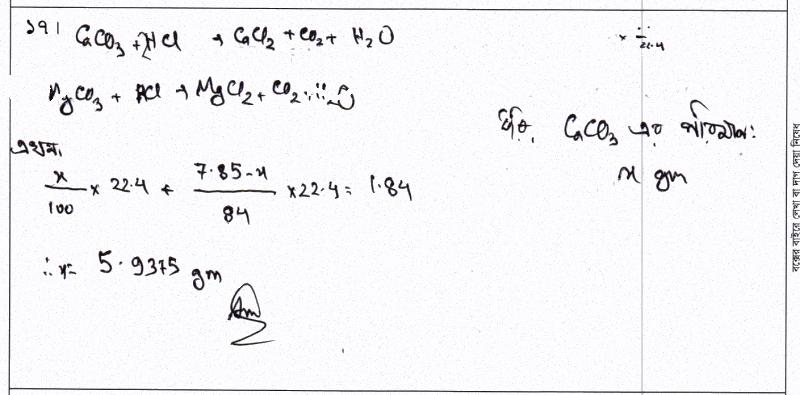 ১৭। CaCO3 + HCl → CaCl2 + CO2 + H2O
MgCO3 + HCl → MgCl2 + CO2
ধরি, CaCO3 এর পরিমাণ:
x gm
এখন,
x/100 × 22.4 + 7.85-x/84 × 22.4 = 1.84
∴ x = 5.9375 gm
Am
× 22.4
বক্সের বাইরে লেখা বা দাগ দেয়া নিষেধ